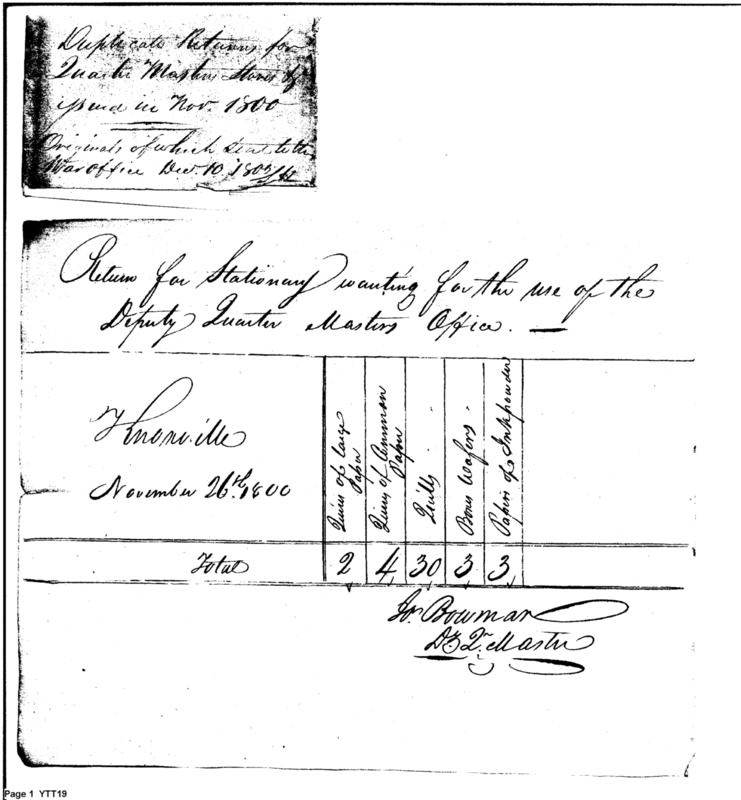 Duplicate Returns for
Quarter Masters Stores
in Nov. 1800
Originals of which Sent to the
War Office Dec. 10, 1800
Return for Stationary wanting for the use of the
Deputy Quarter Masters Office.
Knoxville
November 26th. 1800
Quires of large Paper
Quires of Common Paper
Quills
Boxes Wafers
Papers of Inkpowder
Total 2 4 30 3 3
Jo. Bowman
Dy Qr. Master
Page 1 YTT19